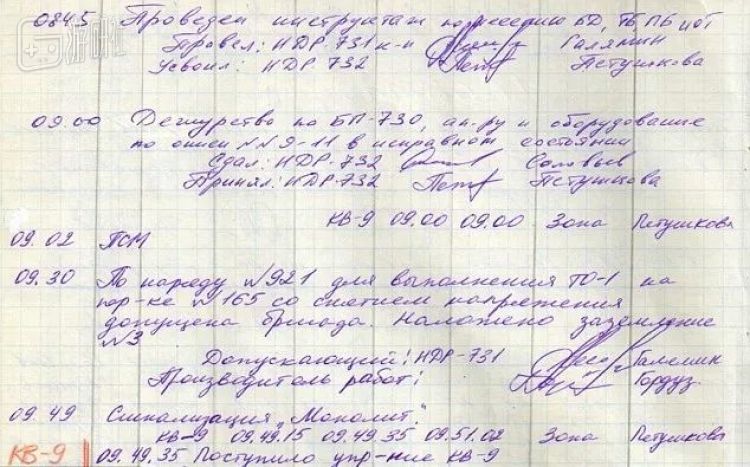 游民星空
0845 Проведен инструктаж по несению БД, ТБ, ПБ и ОТ
Провел: НДР 731 к-н Галямин
Усвоил: НДР 732 Петушкова
09.00 Дежурство по БП-730, ап-ру и оборудование
по описи №№ 9-11 в исправном состоянии
Сдал: НДР-732 Соловьев
Принял: НДР-732 Петушкова
КВ-9 09.00 09.00 Зона Петушкова
09.02 ПСМ
09.30 По наряду №921 для выполнения ТО-1 на
№165 со снятием напряжения
допущена бригада. Наложено заземление
№3
Допускающий: НДР-731 Галямин
Производитель работ:
09.49 Сигнализация "Монолит".
КВ-9 09.49.15 09.49.35 09.51.02 Зона Петушкова
КВ-9 09.49.35 Поступило упр-ние КВ-9